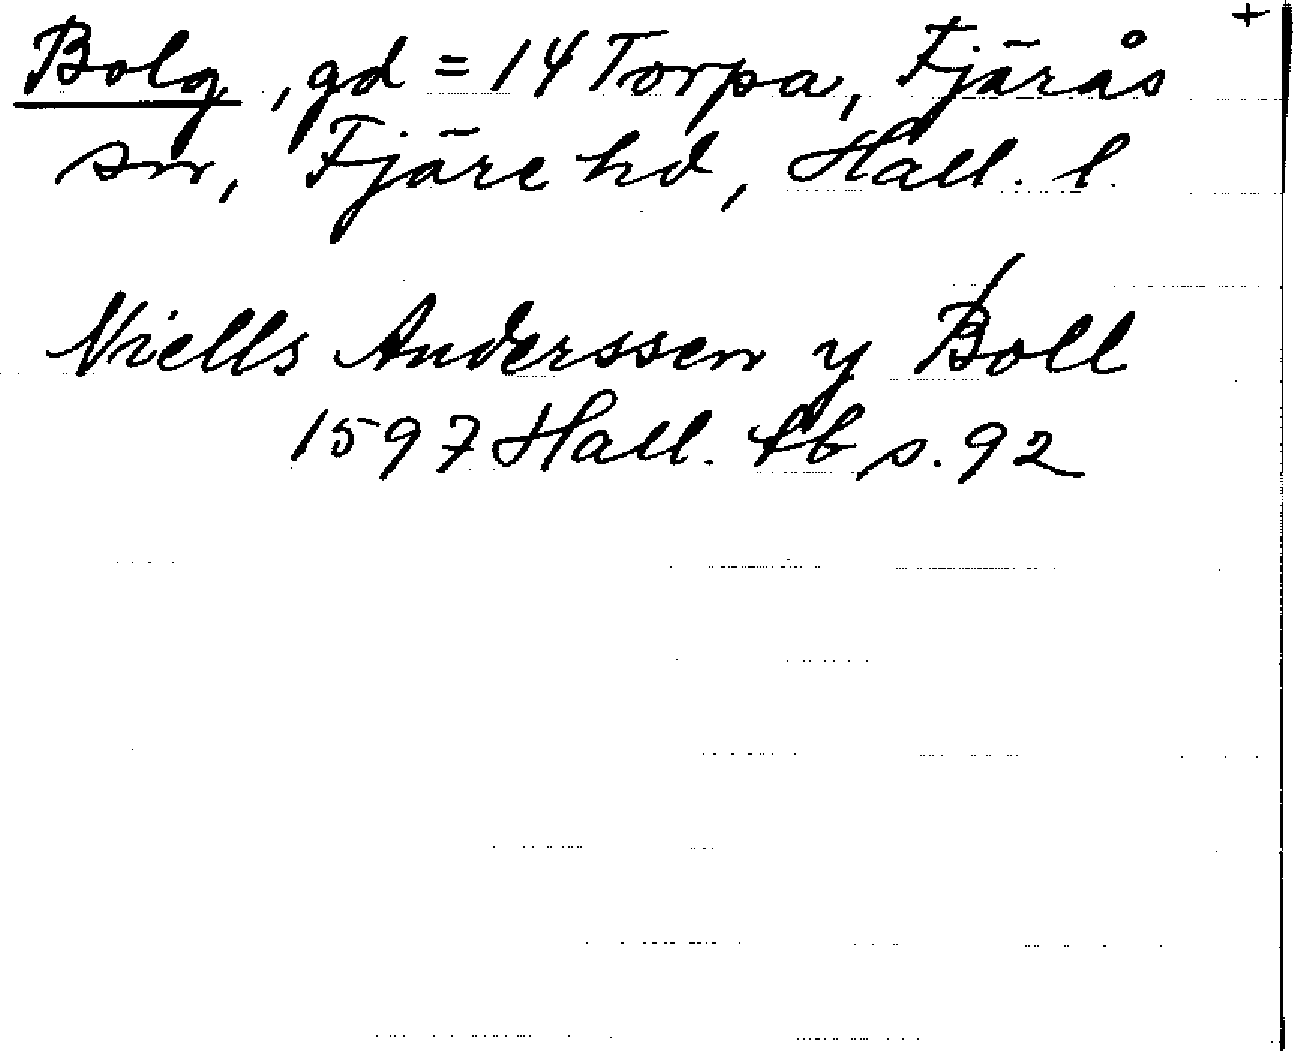 +
Bolg, gd = 14 Torpa, Fjärås
sn, Fjäre hd, Hall. l.
Niells Anderssen y Boll
1597 Hall. lb s. 92